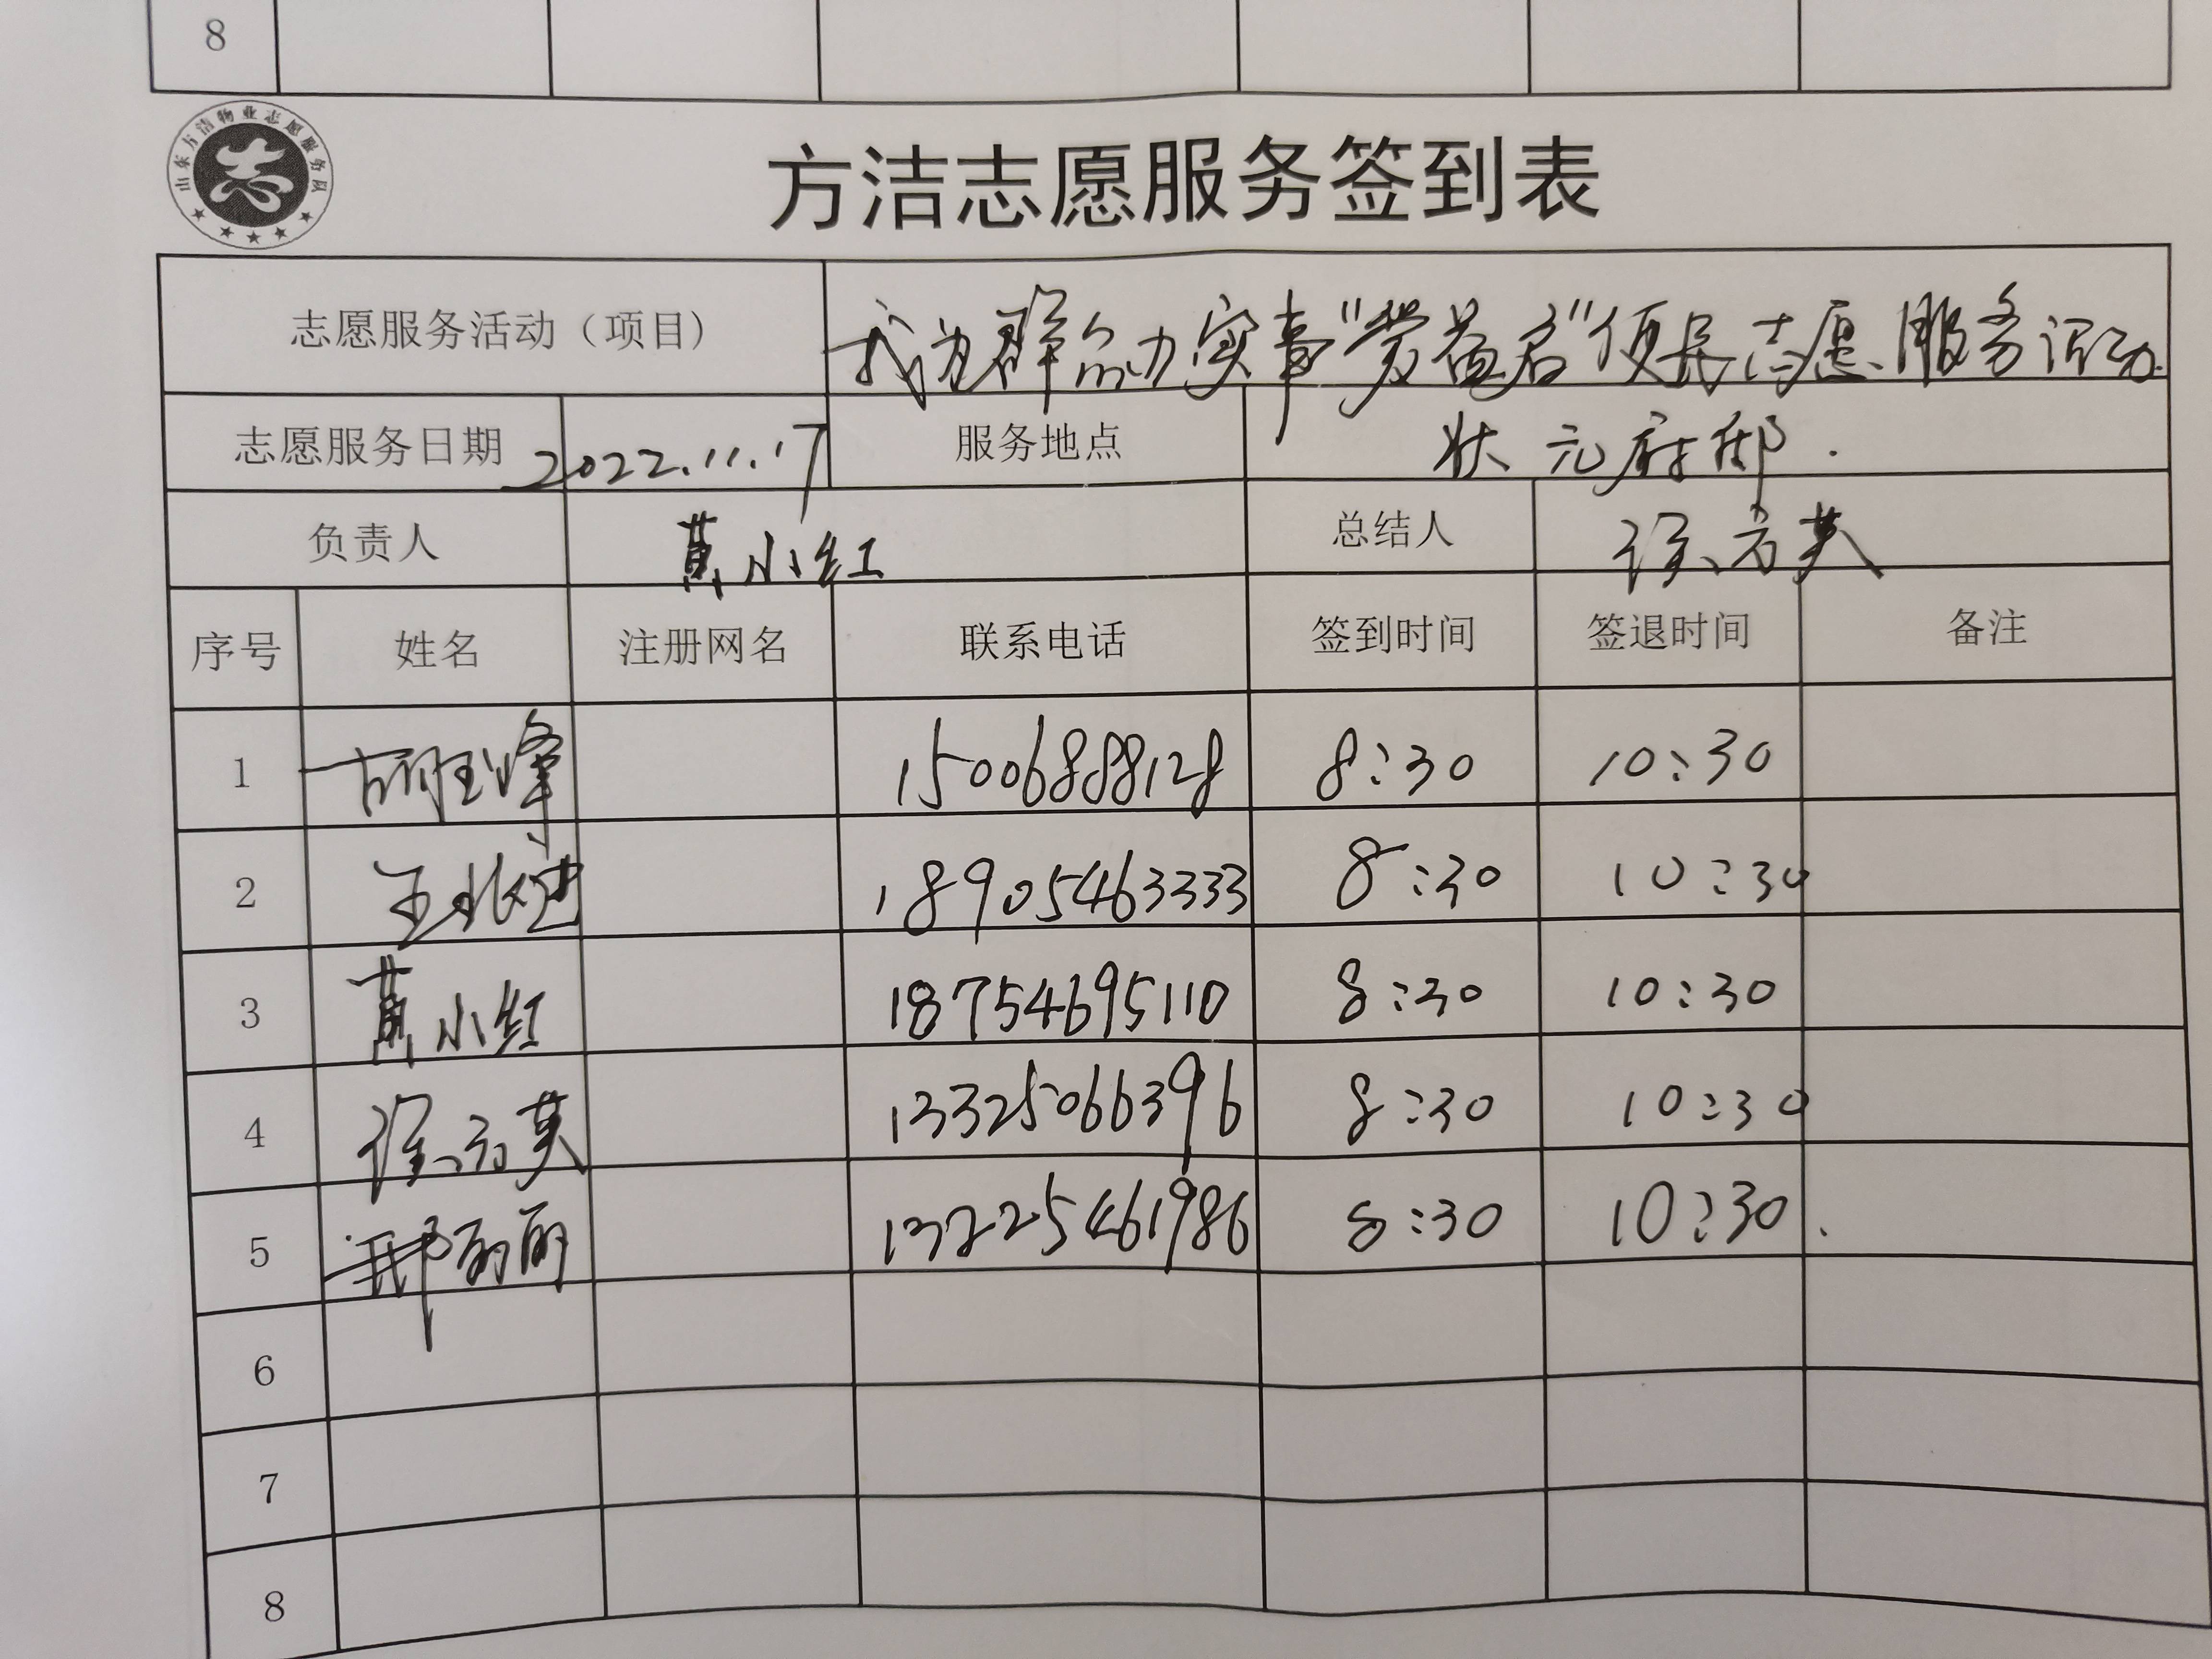 8
山东方洁物业志愿服务队
方洁志愿服务签到表
志愿服务活动（项目） 我为群众办实事"爱益启"便民志愿服务活动.
志愿服务日期 2022.11.17 服务地点 状元府邸.
负责人 小红 总结人 英
序号 姓名 注册网名 联系电话 签到时间 签退时间 备注
1 胡玉峰 15006888128 8:30 10:30
2 王 18905463333 8:30 10:30
3 小红 18754695110 8:30 10:30
4 英 13325066396 8:30 10:30
5 邢丽丽 13225461986 8:30 10:30.
6
7
8